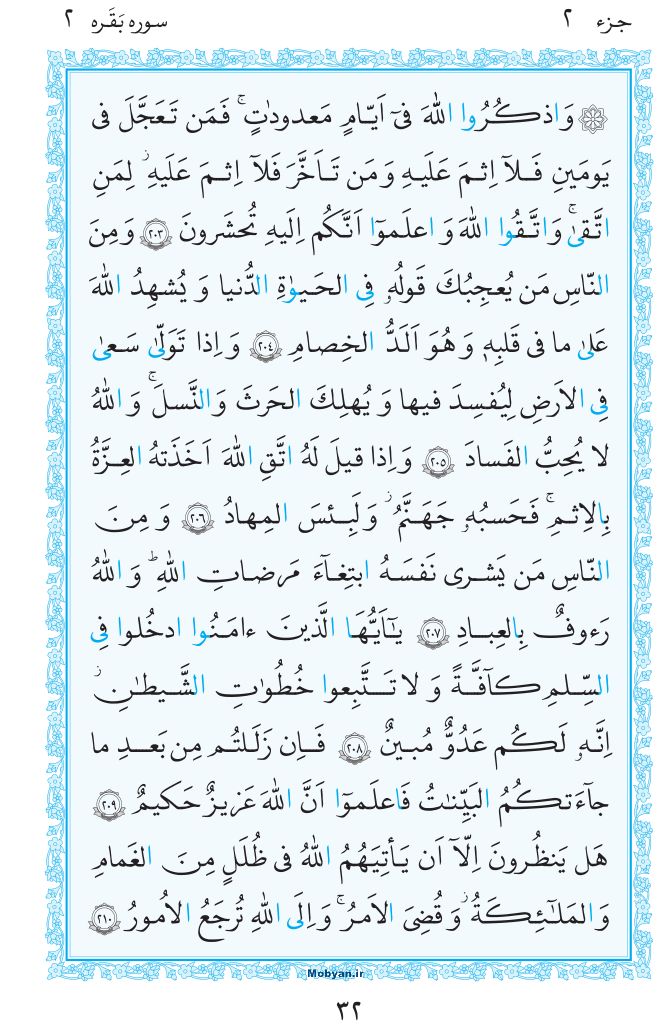 جزء ۲
سوره بَقَره ۲
۞ وَاذكُرُوا اللّٰهَ فىٓ اَيّامٍ مَعدودٰتٍ ۚ فَمَن تَعَجَّلَ فى
يَومَينِ فَلآ اِثمَ عَلَيهِ وَ مَن تَاَخَّرَ فَلآ اِثمَ عَلَيهِ ۙ لِمَنِ
اتَّقىٰ ۚ وَاتَّقُوا اللّٰهَ وَ اعلَموٓا اَنَّكُم اِلَيهِ تُحشَرونَ ﴿٢٠٣﴾ وَ مِنَ
النّاسِ مَن يُعجِبُكَ قَولُهُۥ فِى الحَيوٰةِ الدُّنيا وَ يُشهِدُ اللّٰهَ
عَلىٰ ما فى قَلبِهٖ وَ هُوَ اَلَدُّ الخِصامِ ﴿٢٠٤﴾ وَ اِذا تَوَلّىٰ سَعىٰ
فِى الاَرضِ لِيُفسِدَ فيها وَ يُهلِكَ الحَرثَ وَالنَّسلَ ۚ وَ اللّٰهُ
لا يُحِبُّ الفَسادَ ﴿٢٠٥﴾ وَ اِذا قيلَ لَهُ اتَّقِ اللّٰهَ اَخَذَتهُ العِزَّةُ
بِالاِثمِ ۚ فَحَسبُهُۥ جَهَنَّمُ ۖ وَ لَبِئسَ المِهادُ ﴿٢٠٦﴾ وَ مِنَ
النّاسِ مَن يَشرى نَفسَهُ ابتِغآءَ مَرضاتِ اللّٰهِ ۗ وَ اللّٰهُ
رَءوفٌ بِالعِبادِ ﴿٢٠٧﴾ يٰٓاَيُّهَا الَّذينَ ءامَنُوا ادخُلوا فِى
السِّلمِ كآفَّةً وَ لا تَتَّبِعوا خُطُوٰتِ الشَّيطٰنِ ۚ
اِنَّهُۥ لَكُم عَدُوٌّ مُبينٌ ﴿٢٠٨﴾ فَاِن زَلَلتُم مِن بَعدِ ما
جآءَتكُمُ البَيِّنٰتُ فَاعلَموٓا اَنَّ اللّٰهَ عَزيزٌ حَكيمٌ ﴿٢٠٩﴾
هَل يَنظُرونَ اِلّآ اَن يَأتِيَهُمُ اللّٰهُ فى ظُلَلٍ مِنَ الغَمامِ
وَالمَلٰٓئِكَةُ وَ قُضِىَ الاَمرُ ۚ وَ اِلَى اللّٰهِ تُرجَعُ الاُمورُ ﴿٢١٠﴾
Mobyan.ir
۳۲